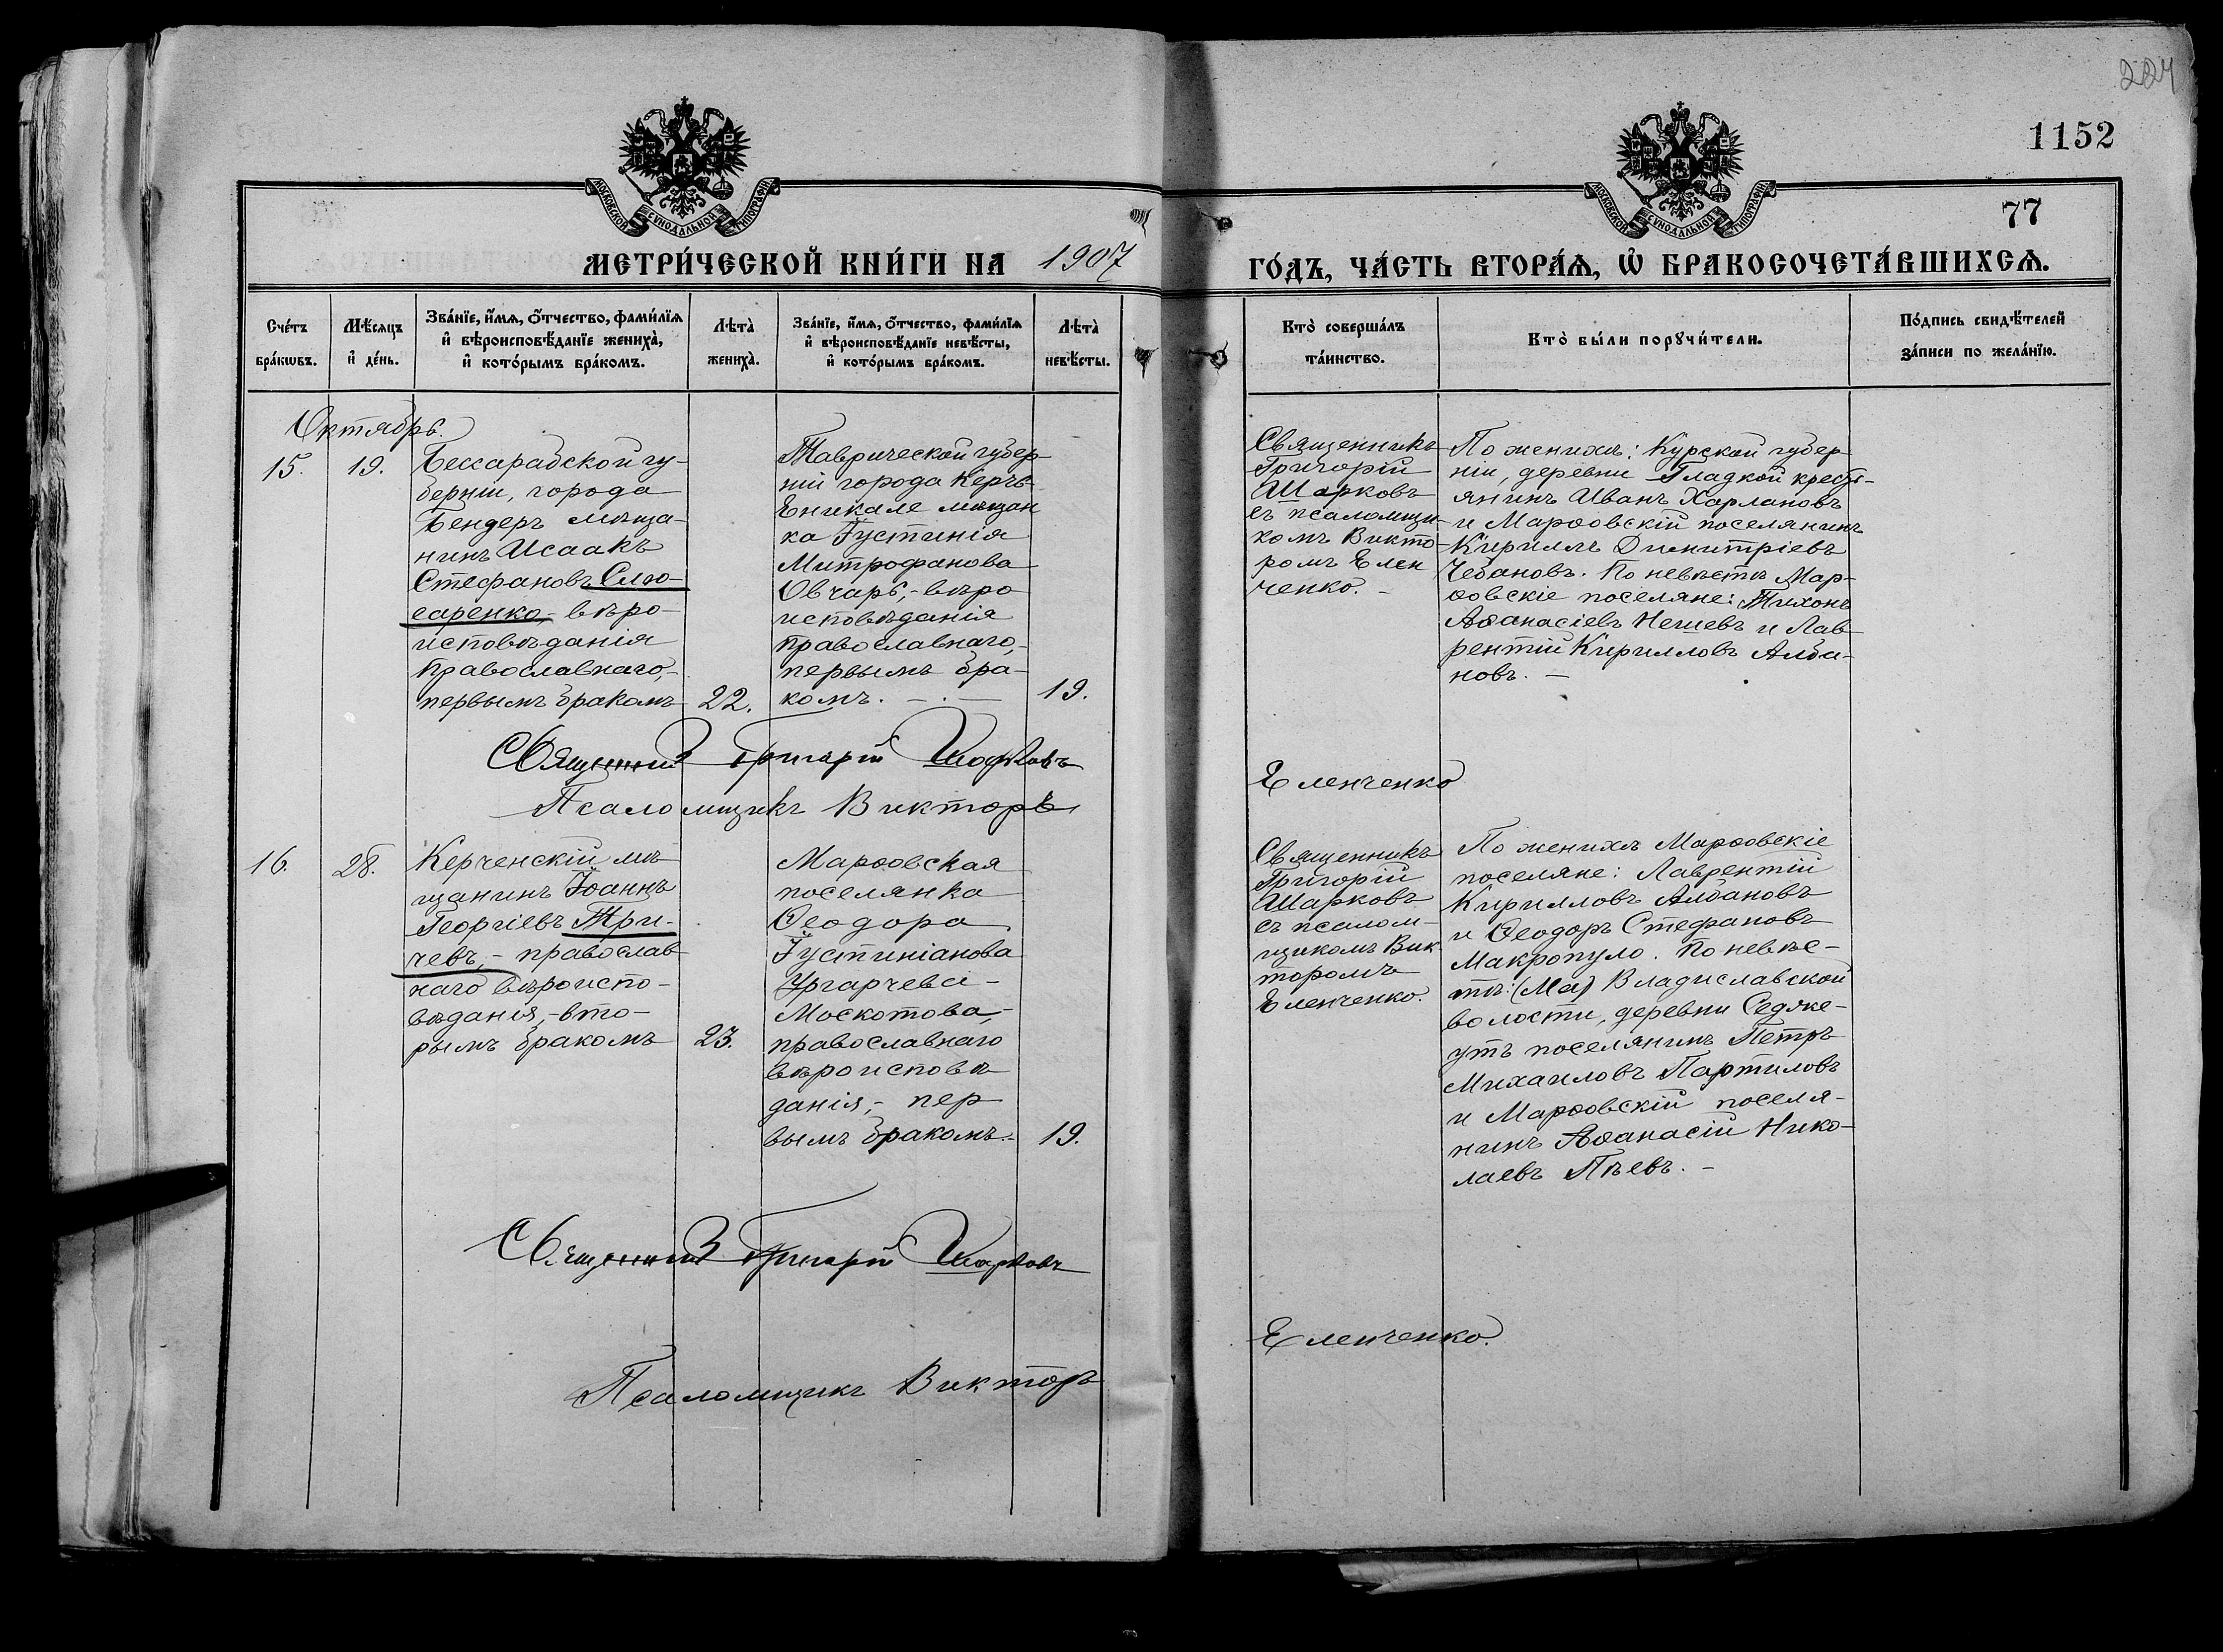 224
1152
77
МОСКОВСКОЙ СѴНОДАЛЬНОЙ ТИПОГРАФІИ
МОСКОВСКОЙ СѴНОДАЛЬНОЙ ТИПОГРАФІИ
МЕТРИ́ЧЕСКОЙ КНИ́ГИ НА 1907
ГО́ДЪ, ЧА́СТЬ ВТОРА́Ѧ, Ѡ҆ БРАКОСОЧЕТА́ВШИХСѦ.
Сче́тъ
бра́кѡвъ.
Мѣ́сѧцъ
и҆ де́нь.
Зва́нїе, и҆́мѧ, ѻ҆́тчество, фами́лїѧ
и҆ вѣроисповѣ́данїе жениха̀,
и҆ кото́рымъ бра́комъ.
Лѣта̀
жениха̀.
Зва́нїе, и҆́мѧ, ѻ҆́тчество, фами́лїѧ
и҆ вѣроисповѣ́данїе невѣ́сты,
и҆ кото́рымъ бра́комъ.
Лѣта̀
невѣ́сты.
Кто̀ соверша́лъ
та́инство.
Кто̀ бы́ли порꙋчи́тели.
По́дпись свидѣ́телей
за́писи по жела́нїю.
Октябрь.
15.
19.
Бессарабской гу-
берніи, города
Бендеръ мѣща-
нинъ Исаакъ
Стефановъ Слю-
саренко,- вѣро-
исповѣданія
православнаго,-
первымъ бракомъ
22.
Таврической губер-
ніи города Керчь-
Еникале мѣщан
ка Іустинія
Митрофанова
Овчарь,- вѣро
исповѣданія
православнаго,-
первымъ бра-
комъ. - . -
19.
Священникъ
Григорій
Шарковъ
съ псаломщи-
комъ Викто-
ромъ Елен
ченко. -
По женихѣ: Курской губер-
ніи, деревни Гладкой кресть-
янинъ Иванъ Харлановъ
и Марѳовскій поселянинъ
Кириллъ Димитріевъ
Чебановъ. По невѣстѣ Мар-
ѳовскіе поселяне: Тихонъ
Аѳанасіевъ Нешевъ и Лав-
рентій Кирилловъ Алба-
новъ. -
Священникъ Григорій Шарковъ
Псаломщикъ Викторъ
Еленченко
16.
28.
Керченскій мѣ-
щанинъ Іоаннъ
Георгіевъ Три-
чевъ,- православ
наго вѣроиспо-
вѣданія,- вто-
рымъ бракомъ
23.
Марѳовская
поселянка
Ѳеодора
Іустиніанова
Ургарчева-
Москотова,-
православнаго
вѣроисповѣ
данія,- пер
вымъ бракомъ.-
19.
Священникъ
Григорій
Шарковъ
съ псалом-
щикомъ Вик
торомъ
Еленченко.
По женихѣ Марѳовскіе
поселяне: Лаврентій
Кирилловъ Албановъ
и Ѳеодоръ Стефановъ
Макропуло. По невѣс-
тѣ: (Ма) Владиславской
волости, деревни Седже-
утъ поселянинъ Петръ
Михаиловъ Партиловъ
и Марѳовскій поселя-
нинъ Аѳанасій Нико-
лаевъ Пѣевъ. -
Священникъ Григорій Шарковъ
Еленченко.
Псаломщикъ Викторъ